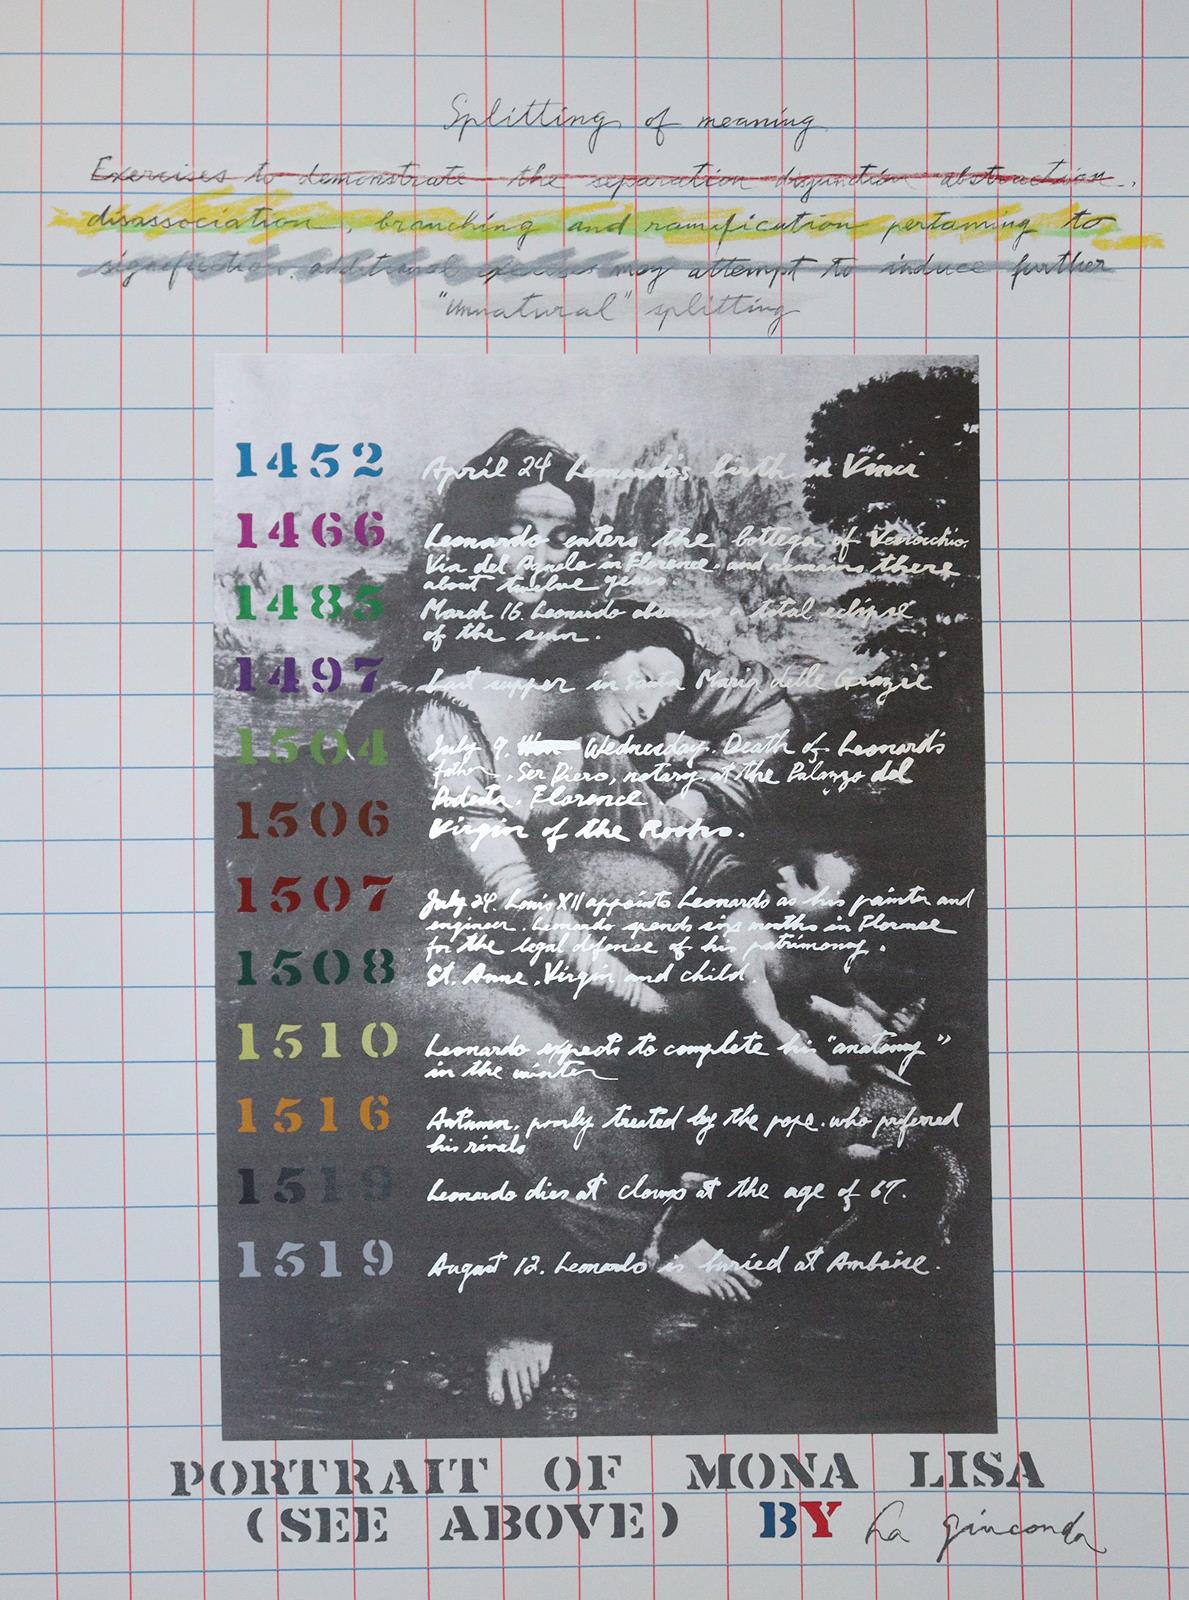 Splitting of meaning
Exercises to demonstrate the separation disjunction abstraction..
disassociation, branching and ramification pertaining to
signification. additional may attempt to induce further
"Unnatural" splitting
1452 April 24 Leonardo's birth in Vinci
1466 Leonardo enters the bottega of Verrocchio.
Via del Agnolo in Florence. and remains there
about twelve years.
1485 March 16. Leonardo observes a total eclipse
of the sunn.
1497 Last supper in Santa Maria delle Grazie
1504 July 9. Wednesday. Death of Leonard's
father, Ser Piero, notary at the Palazzo del
Podesta. Florence.
1506 Virgin of the Rocks.
1507 July 24. Louis XII appoints Leonardo as his painter and
engineer. Leonardo spends months in Florence
for the legal defence of his patrimony.
1508 St. Anne, Virgin and child.
1510 Leonardo expects to complete his "anatomy"
in the winter
1516 Autumn. poorly treated by the pope. who preferred
his rivals
1519 Leonardo dies at at the age of 67.
1519 August 12. Leonardo is buried at Amboise.
PORTRAIT OF MONA LISA
(SEE ABOVE) BY La Gioconda